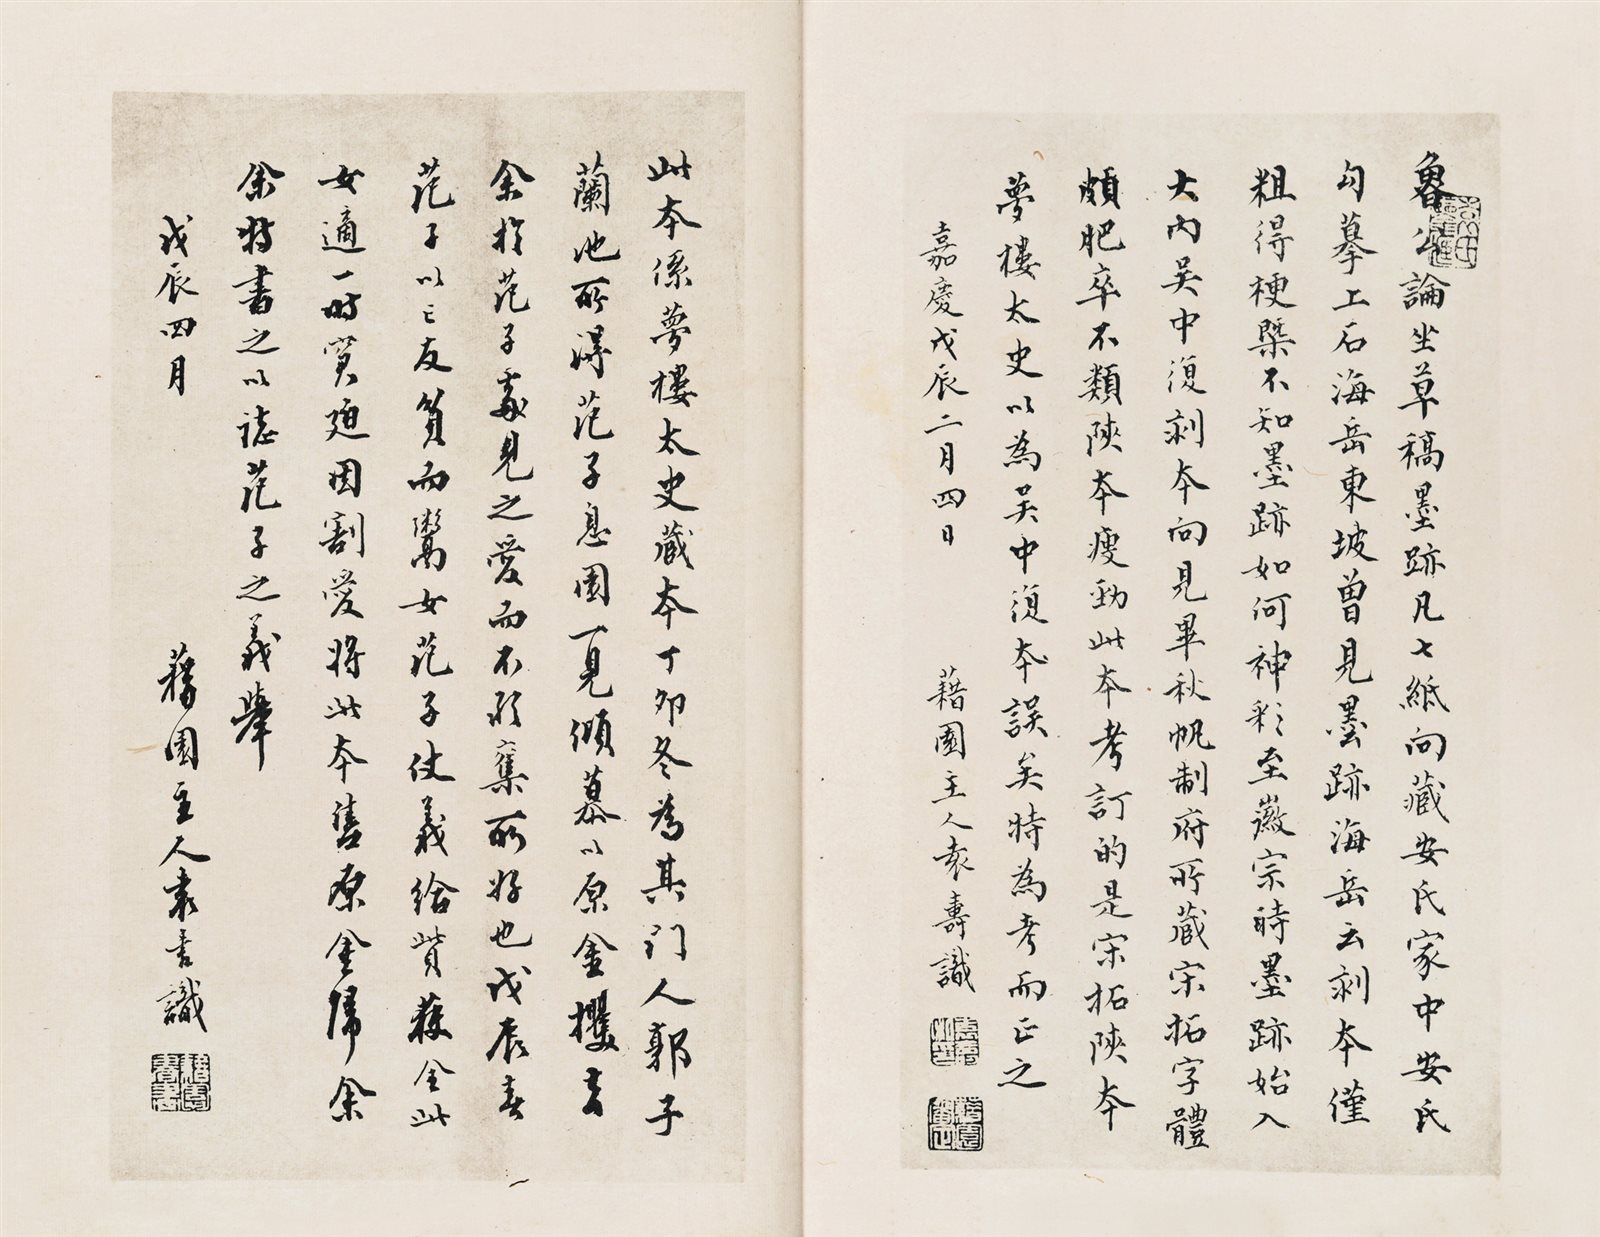 魯公論坐草稿墨跡凡七紙向藏安氏家中安氏
勾摹上石海岳東坡曾見墨跡海岳云刻本僅
粗得梗槩不知墨跡如何神彩至徽宗時墨跡始入
大内吴中復刻本向見畢秋帆制府所藏宋拓字體
頗肥卒不類陝本瘦勁此本考訂的是宋拓陝本
夢樓太史以為吴中復本誤矣特為考而正之
嘉慶戊辰二月四日
藉園主人袁壽識
此本係夢樓太史藏本丁卯冬為其門人郭子
蘭池所得范子息園一見傾慕以原金攫去
余於范子處見之愛而不能奪所好也戊辰春
范子以亡友貧而鬻女范子仗義給貲蘇金此
女適一時窘廹因割愛將此本售原金歸余
余特書之以誌范子之義舉
戊辰四月
藉園主人袁壽識